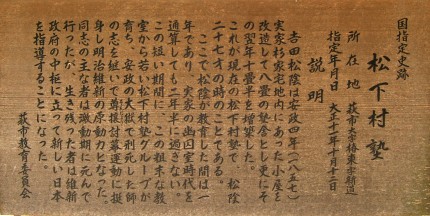 国指定史跡
松下村塾
所在地 萩市大字椿東字新道
指定年月日 大正十一年十月十二日
説明
吉田松陰は安政四年(一八五七)
実家杉家宅地内にあった小屋を
改造して八畳の塾舎とし更にそ
の翌年十畳半を増築した。
これが現在の松下村塾で 松陰
二十七才の時のことである。
ここで松陰が教育した間は一
年であり、実家の幽囚室時代を
通算しても二年半に過ぎない。
この短い期間に、この粗末な教
室から若い松下村塾グループが
育ち、安政の大獄で刑死した師
の志を継いで尊攘討幕運動に挺
身し明治維新の原動力となった。
同志の主な者は激動期に死んで
行ったが、生き残った者は維新
政府の中枢に立って新しい日本
を指導することになった。
萩市教育委員会